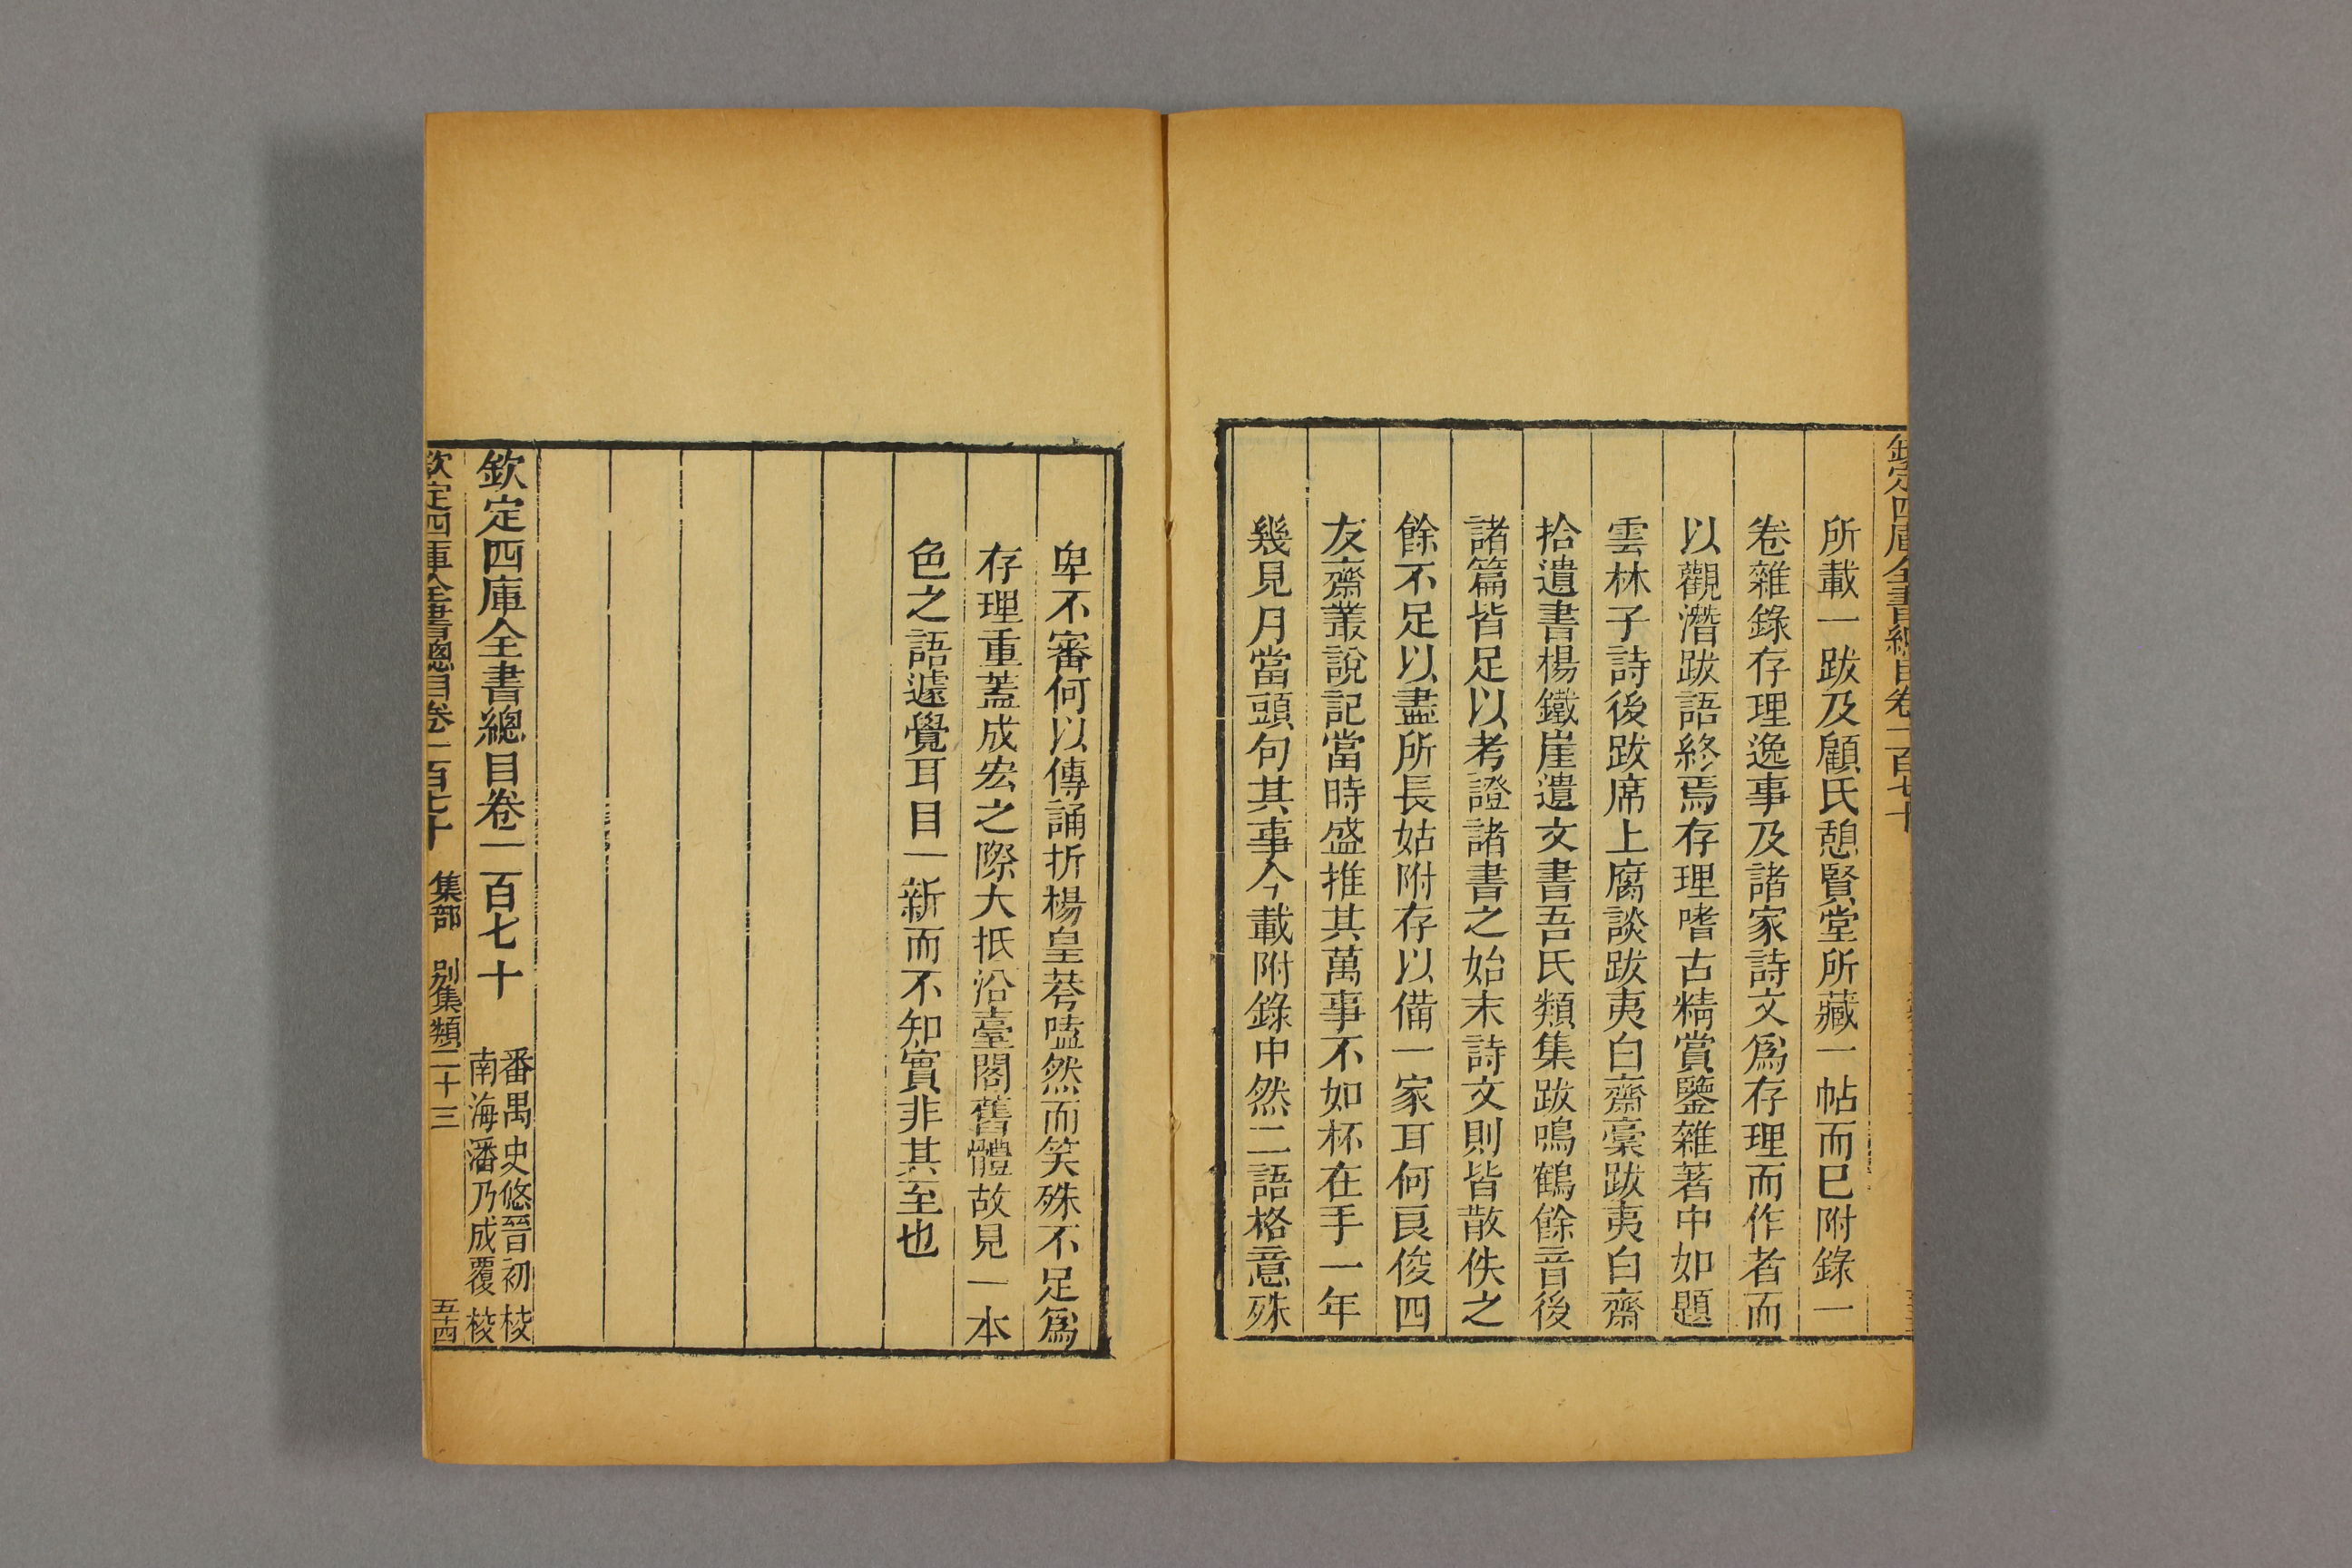 欽定四庫全書總目卷一百七十
所載一跋及顧氏憩賢堂所藏一帖而巳附錄一
卷雜錄存理逸事及諸家詩文爲存理而作者而
以觀潛跋語終焉存理嗜古精賞鑒雜著中如題
雲林子詩後跋席上腐談跋夷白齋稾跋夷白齋
拾遺書楊鐵崖遺文書吾氏類集跋鳴鶴餘音後
諸篇皆足以考證諸書之始末詩文則皆散佚之
餘不足以盡所長姑附存以備一家耳何良俊四
友齋叢說記當時盛推其萬事不如杯在手一年
幾見月當頭句其事今載附錄中然二語格意殊
卑不審何以傳誦折楊皇荂嗑然而笑殊不足爲
存理重蓋成宏之際大抵沿臺閣舊體故見一本
色之語遽覺耳目一新而不知實非其至也
欽定四庫全書總目卷一百七十
番禺史悠晉初㭓
南海潘乃成覆㭓
欽定四庫全書總目卷一百七十 集部 别集類二十三 五十四